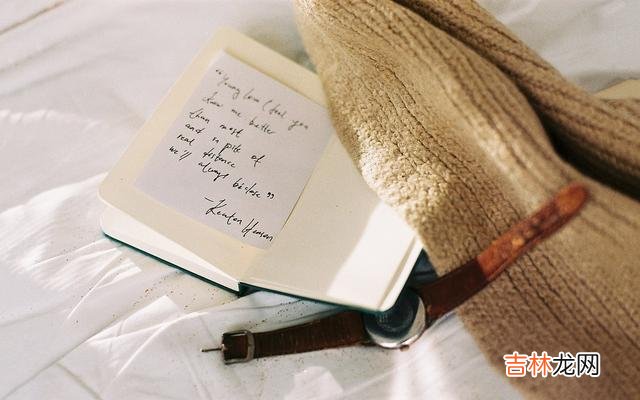 "Young love I feel you
know me better
than most
and in spite of
real distance
we'll always be close"
吉林龙网